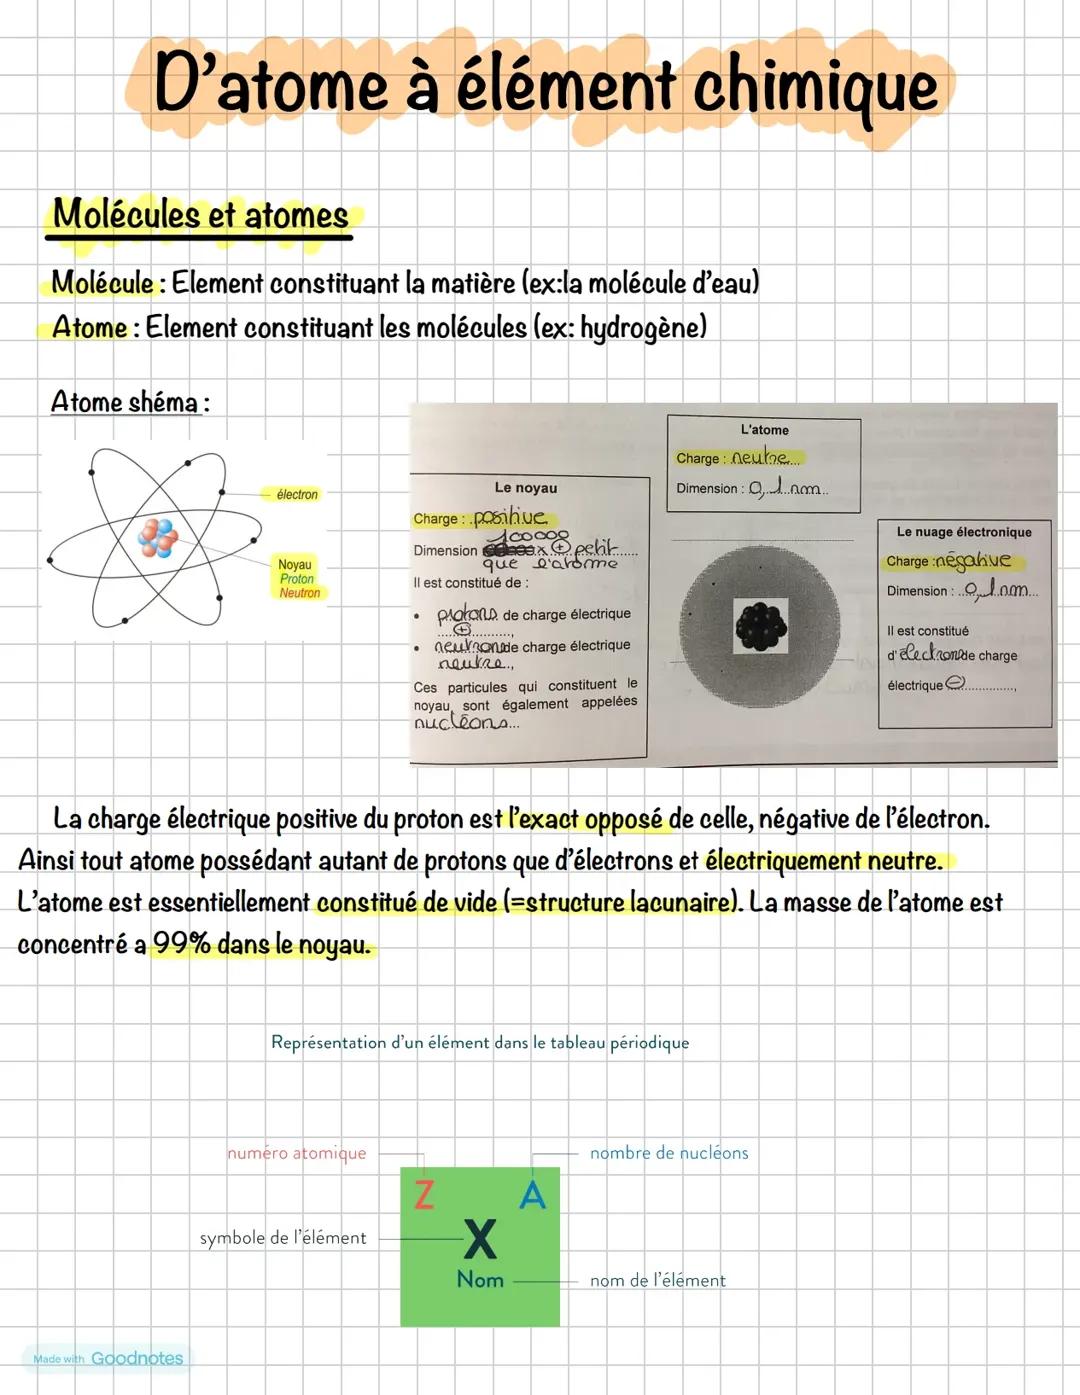 D'atome à élément chimique
Molécules et atomes
Molécule : Element constituant la matière (ex:la molécule d'eau)
Atome : Element constituant les molécules (ex: hydrogène)
Atome shéma :
électron
Noyau
Proton
Neutron
Le noyau
Charge : positive
100000
Dimension x ⊕ petit
que l'atome
Il est constitué de :
• protons de charge électrique
⊕............,
• neutrons de charge électrique
neutre.,
Ces particules qui constituent le
noyau sont également appelées
nucléons...
L'atome
Charge : neutre...
Dimension : 0,1 nm..
Le nuage électronique
Charge : négative
Dimension : ..0,1 nm...
Il est constitué
d'électrons de charge
électrique ⊖..............,
La charge électrique positive du proton est l'exact opposé de celle, négative de l'électron.
Ainsi tout atome possédant autant de protons que d'électrons et électriquement neutre.
L'atome est essentiellement constitué de vide (=structure lacunaire). La masse de l'atome est
concentré a 99% dans le noyau.
Représentation d'un élément dans le tableau périodique
numéro atomique
nombre de nucléons
Z A
symbole de l'élément
X
Nom
nom de l'élément
Made with Goodnotes